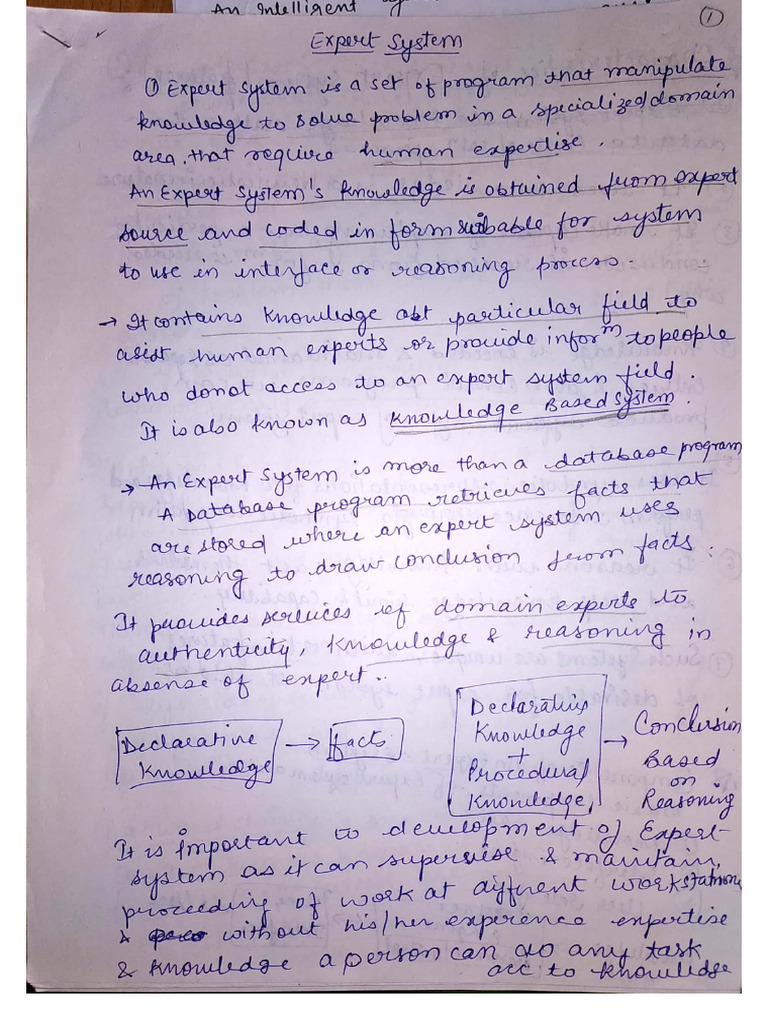 An Intelligent
1
Expert System
① Expert System is a set of program that manipulate
knowledge to solve problem in a specialized domain
area, that require human expertise.
An Expert System's knowledge is obtained from expert
source and coded in form suitable for system
to use in interface or reasoning process.
→ It contains knowledge abt particular field to
asist human experts or provide inform to people
who donot access to an expert system field.
It is also known as Knowledge Based System.
→ An Expert System is more than a database program
A database program retrieves facts that
are stored where an expert system uses
reasoning to draw conclusion from facts.
It provides services of domain experts to
authenticity, knowledge & reasoning in
absense of expert..
Declarative
Knowledge
→ facts
Declarative
Knowledge
+
Procedural
Knowledge
→ Conclusion
Based
on
Reasoning
It is important to development of Expert-
system as it can supervise & maintain
proceeding of work at diffrent workstations
& without his/her experence expertise
& knowledge a person can do any task
acc to knowledge